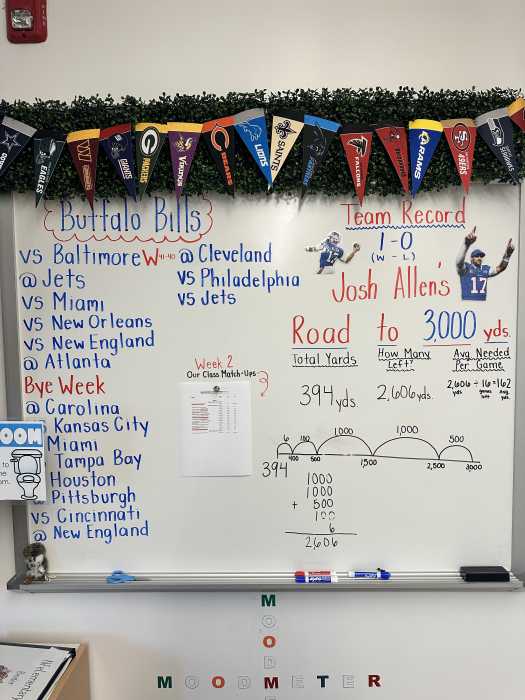 EAGLES
GIANTS
PACKERS
VIKINGS
BEARS
LIONS
SAINTS
FALCONS
RAMS
49ERS
SEAHAWKS
Buffalo Bills
vs Baltimore W 41-40
@ Jets
vs Miami
vs New Orleans
vs New England
@ Atlanta
Bye Week
@ Carolina
Kansas City
Miami
Tampa Bay
Houston
@ Pittsburgh
vs Cincinnati
@ New England
@ Cleveland
vs Philadelphia
vs Jets
Team Record
1-0
(W - L)
17
Josh Allen's
Road to 3,000 yds.
Total Yards
394 yds.
How Many
Left?
2,606 yds.
Avg. Needed
Per Game
2,606 ÷ 16 = 162
yds. games left Avg. yds.
Week 2
Our Class Match-Ups
6 100 1,000 1,000 500
394 400 500 1,500 2,500 3000
1000
1000
+ 500
100
6
2606
OOM
to
the
om.
MOOD
MOODMETER